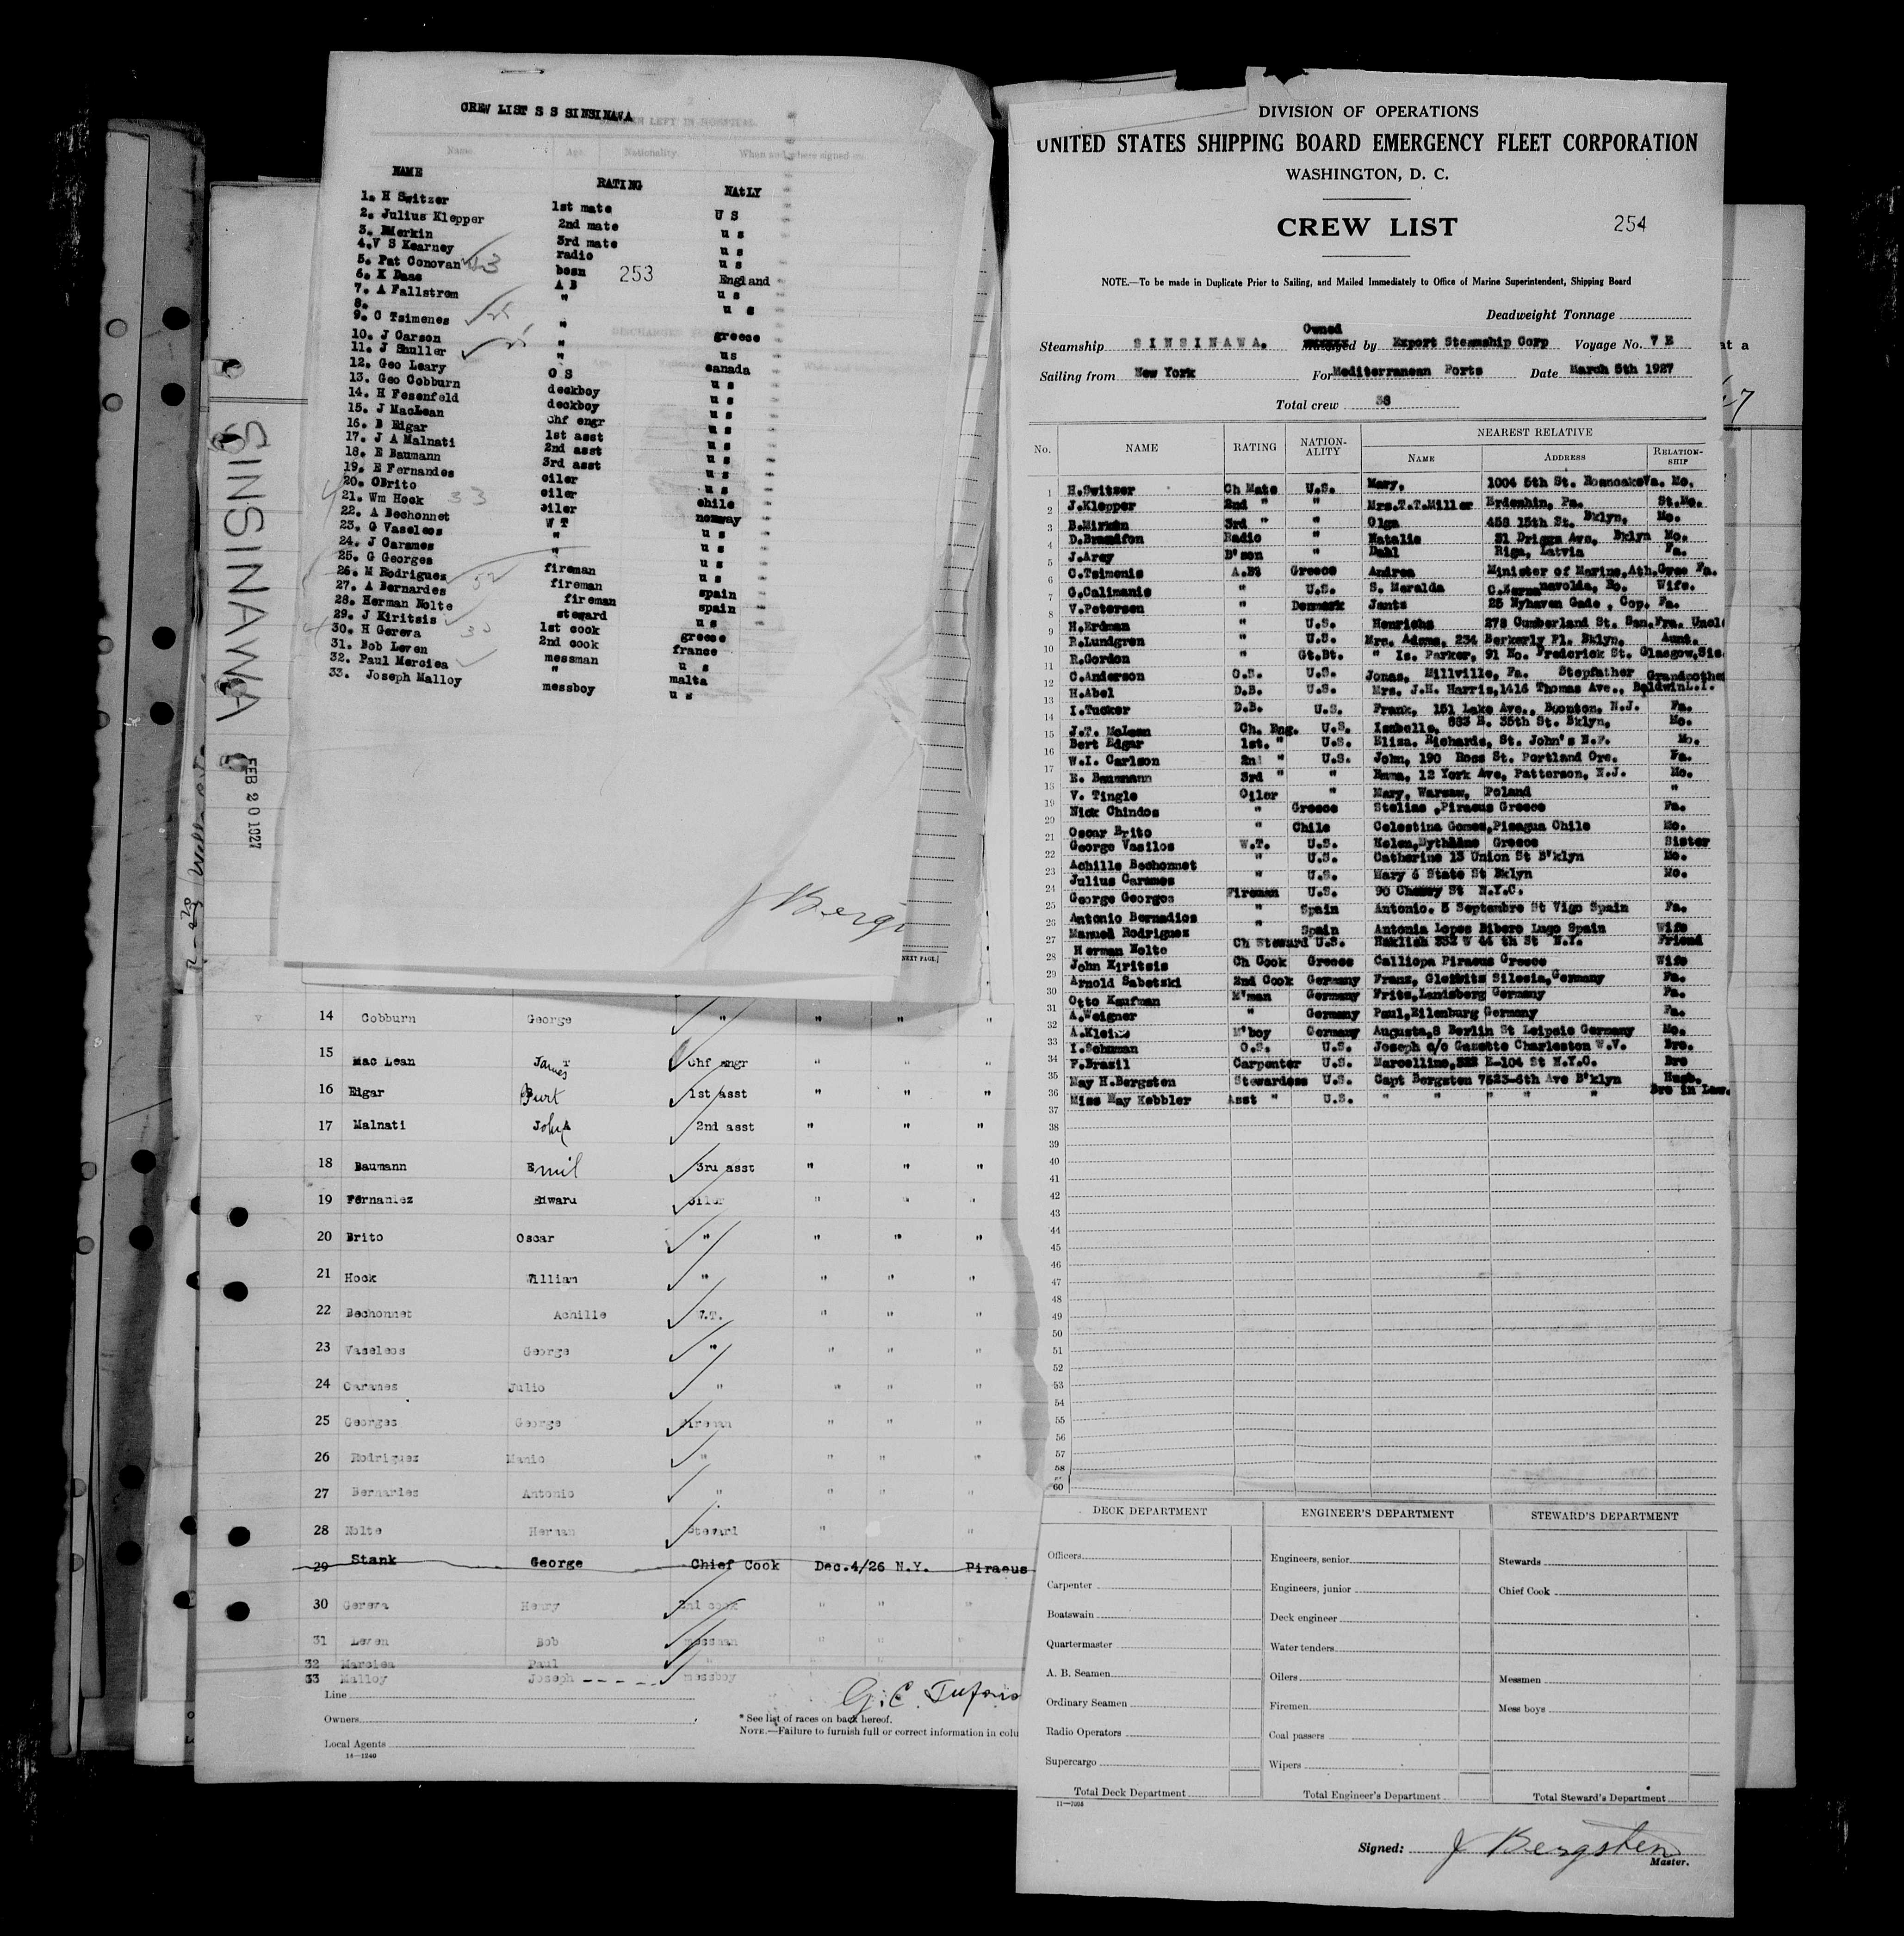 SINSINAWA
FEB 20 1927
CREW LIST S S SINSINAWA
NAME RATING NAtLY
1. H Switzer 1st mate U S
2. Julius Klepper 2nd mate u s
3. BMerkin 3rd mate u s
4.V S Kearney radio u s
5. Pat Conovan bosn England
253
6. K Daas A B u s
7. A Fallstrom " u s
8.
9. C Tsimenes " greece
10. J Carson " us
11. J Shuller " canada
12. Geo Leary O S u s
13. Geo Cobburn deckboy u s
14. H Fesenfeld deckboy u s
15. J MacLean chf engr u s
16. B Eigar 1st asst u s
17. J A Malnati 2nd asst u s
18. E Baumann 3rd asst u s
19. E Fernandes oiler u s
20. OBrito oiler chile
21. Wm Hock oiler norway
22. A Bechonnet W T u s
23. G Vaseleos " u s
24. J Carames " u s
25. G Georges fireman u s
26. M Rodriguez fireman spain
27. A Bernardes fireman spain
28. Herman Nolte steward u s
29. J Kiritsis 1st cook greece
30. H Gereva 2nd cook france
31. Bob Leven messman u s
32. Paul Merciea " malta
33. Joseph Malloy messboy u s
NEXT PAGE.
14 Cobburn George " " " "
15 Mac Lean James T Chf engr
16 Eigar Burt 1st asst " " "
17 Malnati John A 2nd asst " " "
18 Baumann Emil 3rd asst " " "
19 Fernandez Edward oiler " " "
20 Brito Oscar " " " "
21 Hock William " " " "
22 Bechonnet Achille W.T. " " "
23 Vaseleos George " " " "
24 Carames Julio " " " "
25 Georges George fireman " " "
26 Rodriguez Manio " " " "
27 Bernardes Antonio " " " "
28 Nolte Herman Steward " "
29 Stank George Chief Cook Dec.4/26 N.Y. Piraeus
30 Gereva Henry 2nd cook " " "
31 Leven Bob messman " " "
32 Marciea Paul " "
33 Malloy Joseph - - - - messboy
Line
Owners
Local Agents
16—1240
* See list of races on back hereof.
NOTE.—Failure to furnish full or correct information in colu
DIVISION OF OPERATIONS
UNITED STATES SHIPPING BOARD EMERGENCY FLEET CORPORATION
WASHINGTON, D. C.
CREW LIST
254
NOTE.—To be made in Duplicate Prior to Sailing, and Mailed Immediately to Office of Marine Superintendent, Shipping Board
Deadweight Tonnage
Steamship SINSINAWA. Owned by Export Steamship Corp Voyage No. 7 E
Sailing from New York For Mediterranean Ports Date March 5th 1927
Total crew 38
No. NAME RATING NATION-ALITY NEAREST RELATIVE
NAME ADDRESS RELATION-SHIP
1 H.Switzer Ch Mate U.S. Mary, 1004 5th St. RoanoakeVa. Mo.
2 J.Klepper 2nd " " Mrs.T.T.Miller Erdenhin, Pa. St.Mo.
3 B.Mirkin 3rd " " Olga 458 15th St. Bklyn, Mo.
4 D.Brandfon Radio " Natalie 31 Driggs Ave, Bklyn Mo.
5 J.Arey B'son " Dahl Riga, Latvia Fa.
6 C.Tsimenis A.BS Greece Andrea Minister of Marine,Ath.Gree Fa.
7 G.Calimanis " U.S. S. Meralda Wife.
8 V.Petersen " Denmark Jants 25 Nyhaven Gade , Cop. Fa.
9 H.Erdman " U.S. Henrichs 278 Cumberland St. San.Fra. Uncle
10 R.Lundgren " U.S. Mrs. Adams, 234 Berkerly Pl. Bklyn. Aunt.
11 R.Gordon " Gt.Bt. " Is. Parker, 91 No. Frederick St. Glasgow,Sis.
12 C.Anderson O.S. U.S. Jonas, Millville, Pa. Stepfather
13 H.Abel D.B. U.S. Mrs. J.H. Harris,1416 Thomas Ave., BaldwinL.I. Grandmother
14 I.Tucker D.B. U.S. Frank, 151 Lake Ave., Boonton, N.J. Fa.
15 J.T. McLean Ch. Eng. U.S. Isabella, 883 E. 35th St. Bklyn, Mo.
16 Bert Edgar 1st. " U.S. Eliza. Richards, St. John's N.F. Mo.
17 W.I. Carlson 2nd " U.S. John, 190 Ross St. Portland Ore. Fa.
18 E. Baumann 3rd " " Emma, 12 York Ave, Patterson, N.J. Mo.
19 V. Tingle Oiler " Mary, Warsaw, Poland "
20 Nick Chindos " Greece Stelias ,Piraeus Greece Fa.
21 Oscar Brito " Chile Celestina Gomes,Pisagua Chile Mo.
22 George Vasilos W.T. U.S. Helen,Mythline Greece Sister
23 Achille Bechonnet " U.S. Catherine 13 Union St B'klyn Mo.
24 Julius Carames " U.S. Mary 6 State St Bklyn Mo.
25 George Georgos Fireman U.S. 90 Cherry St N.Y.C.
26 Antonio Bernadios " Spain Antonio. 5 Septembre St Vigo Spain Fa.
27 Manuel Rodriguez " Spain Antonia Lopes Ribero Lugo Spain Wife
28 Herman Nolte Ch Steward U.S. Haklish 332 W 44 th St N.Y. Friend
29 John Kiritsis Ch Cook Greece Calliopa Piraeus Greece Wife
30 Arnold Sabotzki 2nd Cook Germany Franz, Gleiwits Silesia,Germany Fa.
31 Otto Kaufman M'man Germany Frits,Landsberg Germany Fa.
32 A.Weigner " Germany Paul,Eilenburg Germany Fa.
33 A.Kleine M'boy Germany Augusta,8 Berlin St Leipsic Germany Mo.
34 I.Schuman O.S. U.S. Joseph c/o Gazette Charleston W.V. Bro.
35 F.Brazil Carpenter U.S. Marcelline,332 E-104 St N.Y.C. Bro
36 May H.Bergsten Stewardess U.S. Capt Bergsten 7523-6th Ave B'klyn Husb.
37 Miss May Kebbler Asst " U.S. " " " " " Bro in Law.
38
39
40
41
42
43
44
45
46
47
48
49
50
51
52
53
54
55
56
57
58
60
DECK DEPARTMENT ENGINEER'S DEPARTMENT STEWARD'S DEPARTMENT
Officers Engineers, senior Stewards
Carpenter Engineers, junior Chief Cook
Boatswain Deck engineer
Quartermaster Water tenders
A. B. Seamen Oilers Messmen
Ordinary Seamen Firemen Mess boys
Radio Operators Coal passers
Supercargo Wipers
Total Deck Department Total Engineer's Department Total Steward's Department
Signed: J Bergsten
Master.